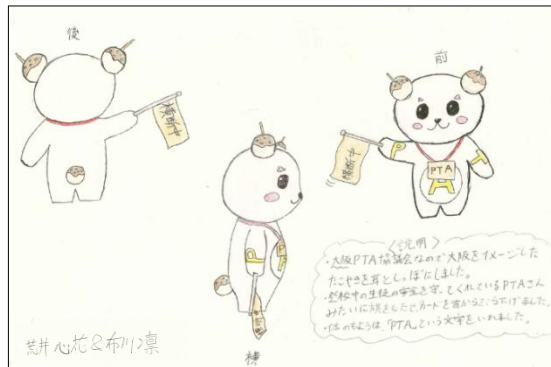 後
横断中
前
横断中
P
T
PTA
A
P
横
〈説明〉
・大阪PTA協議会なので大阪をイメージした
たこやきを耳としっぽにしました。
・登校中の生徒の安全を守ってくれているPTAさん
みたいに旗をもたせ、カードを首からさげました。
・体のもようは、「PTA」という文字をいれました。
荒井心花&布川凛